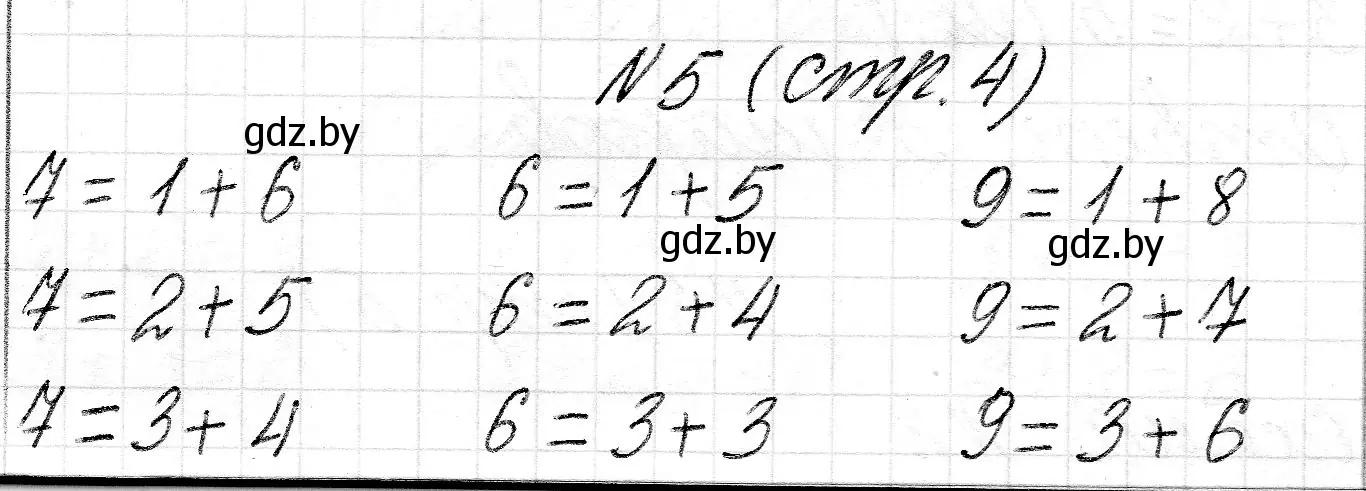 №5 (стр. 4)
gdz.by
7 = 1 + 6 6 = 1 + 5 9 = 1 + 8
gdz.by gdz.by
7 = 2 + 5 6 = 2 + 4 9 = 2 + 7
7 = 3 + 4 6 = 3 + 3 9 = 3 + 6